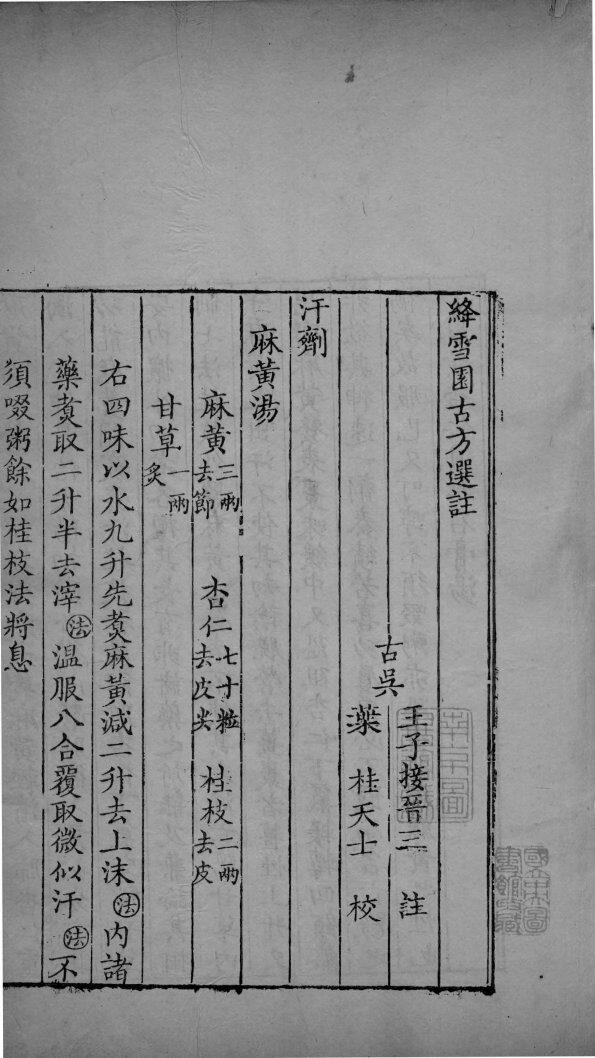 絳雪園古方選註
古吳
王子接晉三　註
葉　桂天士　校
汗劑
麻黃湯
麻黃三兩去節　杏仁七十粒去皮尖　桂枝二兩去皮
甘草一兩炙
右四味以水九升先煑麻黃減二升去上沫法内諸
藥煑取二升半去滓法温服八合覆取微似汗法不
須啜粥餘如桂枝法將息